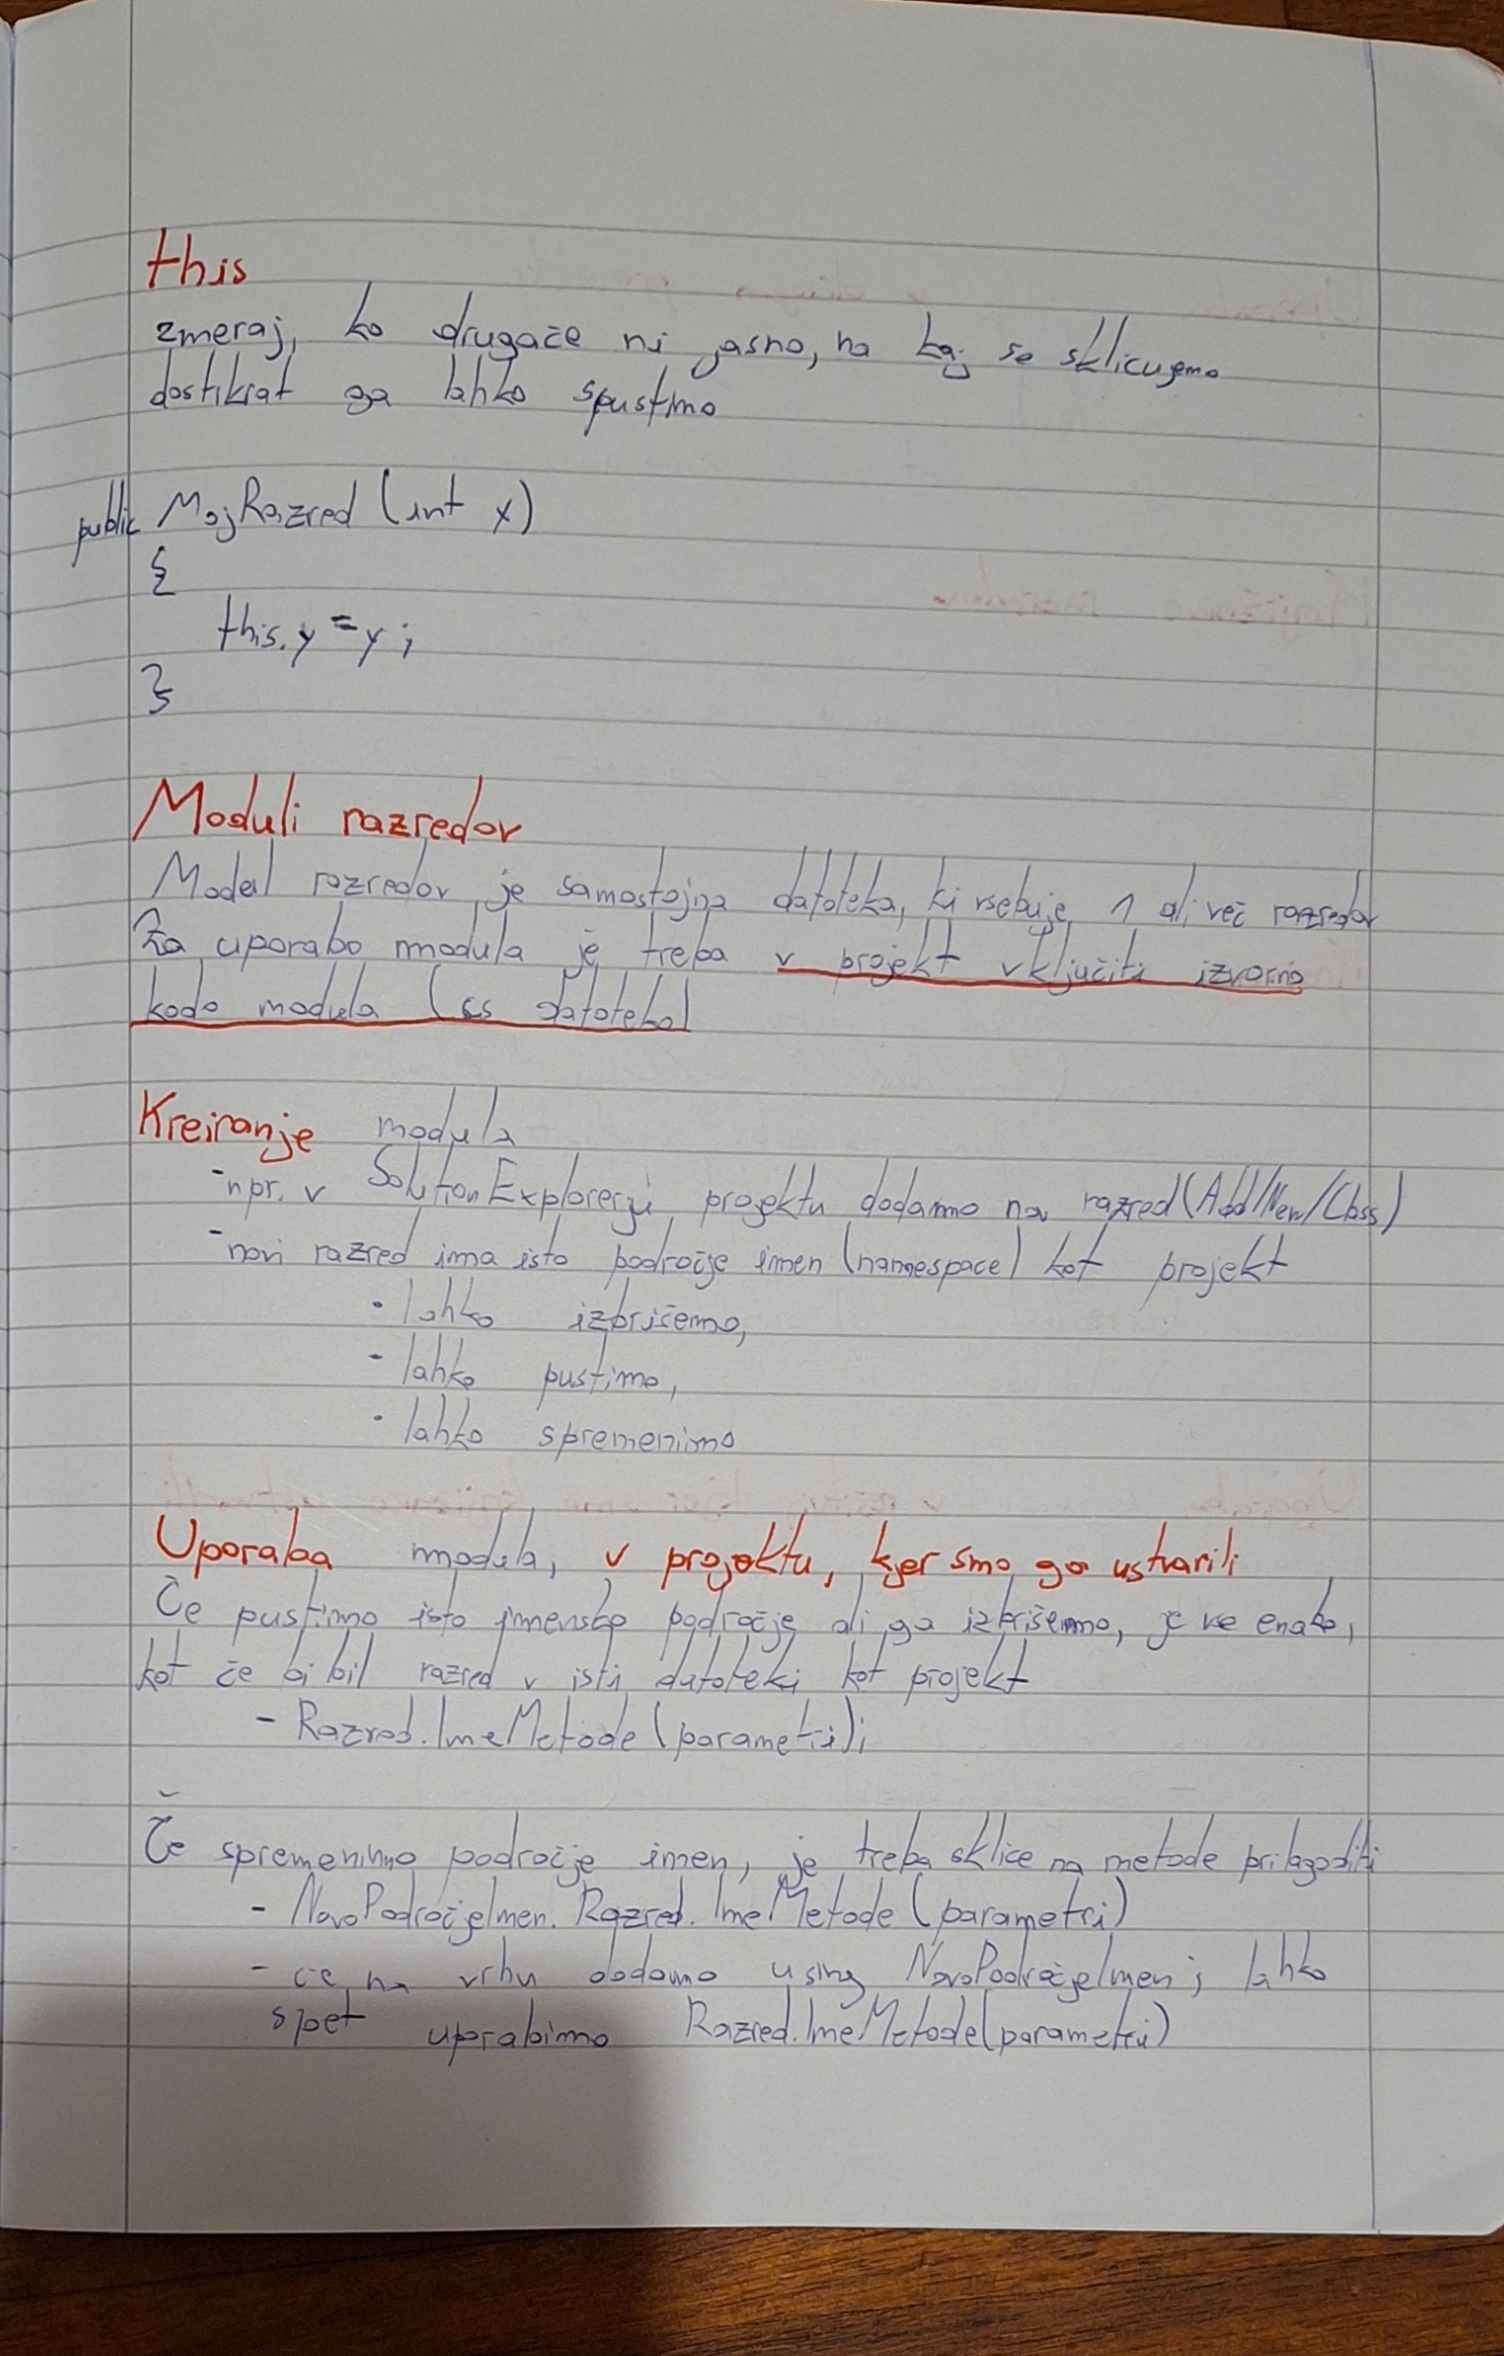 this
zmeraj, ko drugače ni jasno, na kaj se sklicujemo
dostikrat ga lahko spustimo
public MojRazred (int x)
{
this.y = y;
}
Moduli razredov
Modul razredov je samostojna datoteka, ki vsebuje 1 ali več razredov
Za uporabo modula je treba v projekt vključiti izvorno
kodo modula (cs datoteko)
Kreiranje modula
-npr. v SolutionExplorerju projektu dodamo nov razred (Add/New/Class)
-novi razred ima isto področje imen (namespace) kot projekt
• lahko izbrišemo,
• lahko pustimo,
• lahko spremenimo
Uporaba modula, v projektu, kjer smo ga ustvarili
Če pustimo isto imensko področje ali ga izbrišemo, je vse enako,
kot če bi bil razred v isti datoteki kot projekt
- Razred.ImeMetode(parametri);
Če spremenimo področje imen, je treba sklice na metode prilagoditi
- NovoPodročjeImen.Razred.ImeMetode(parametri)
- če na vrhu dodamo using NovoPodročjeImen; lahko
spet uporabimo Razred.ImeMetode(parametri)